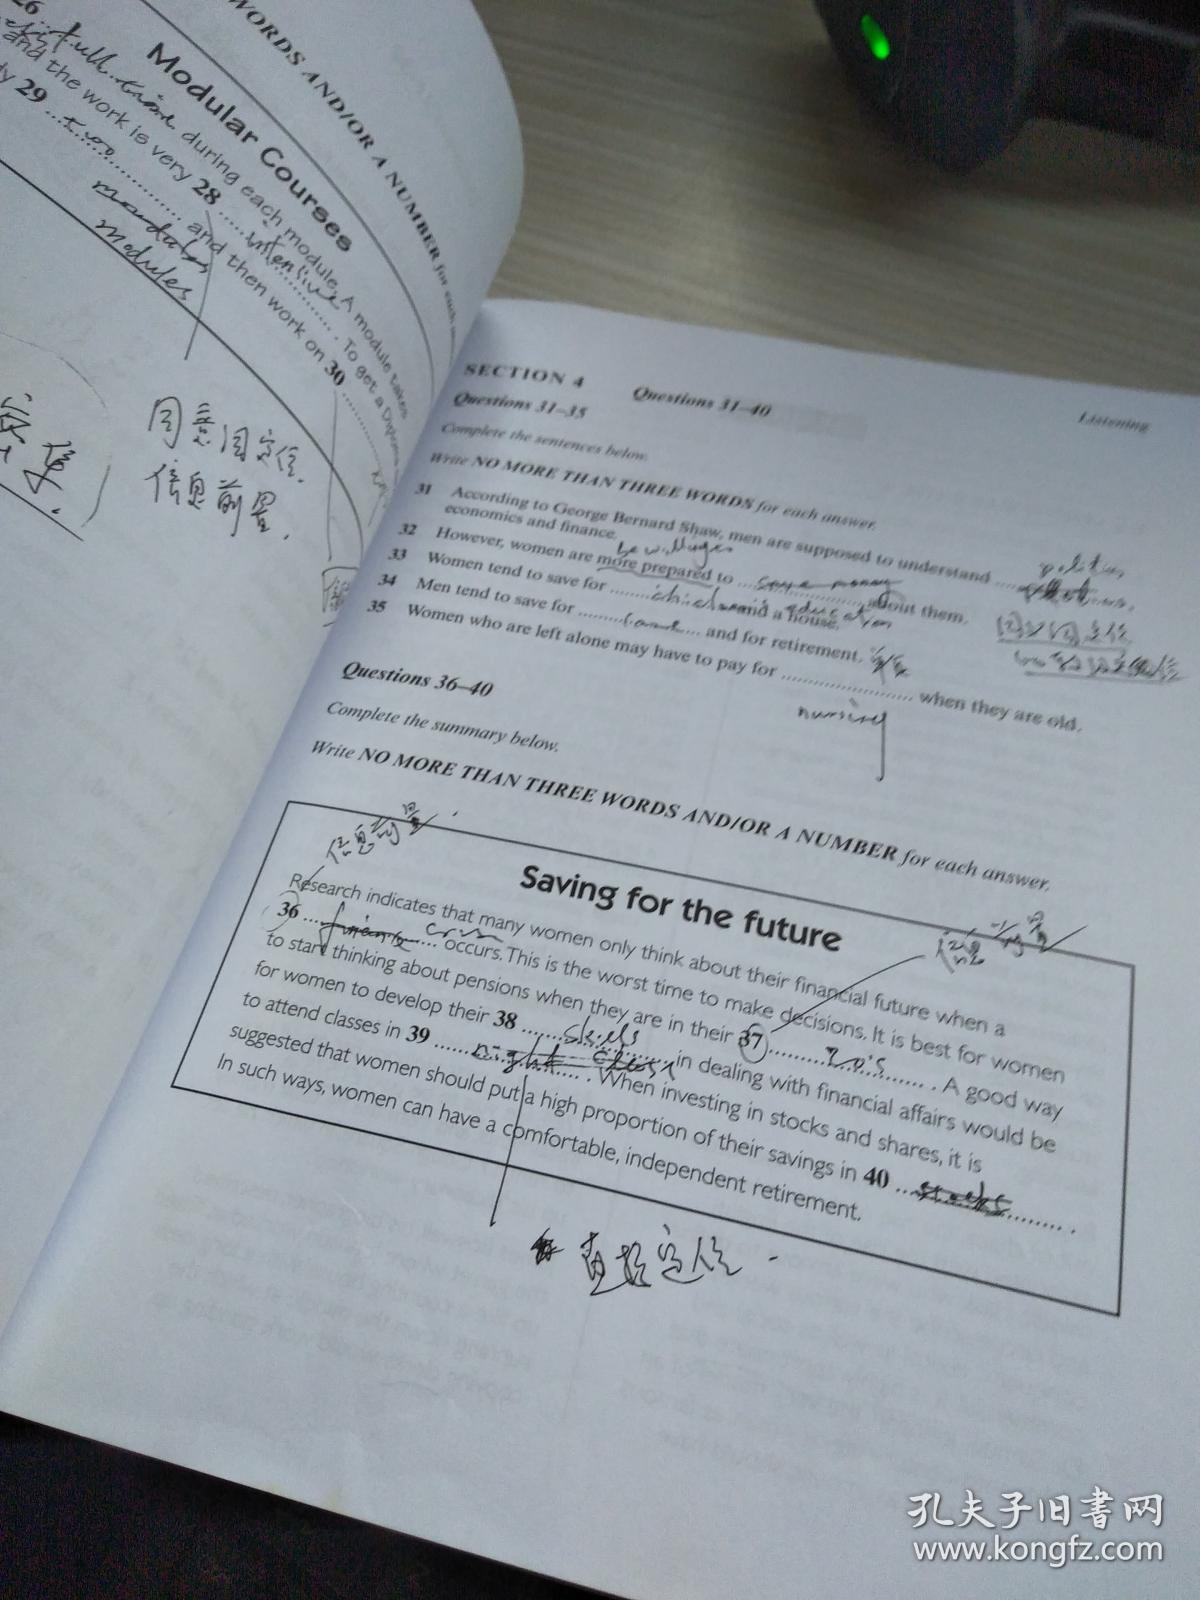 26
WORDS AND/OR A NUMBER for each
Modular Courses
full-time during each module. A module takes
and the work is very 28 intensive. To get a Diploma
29 two
modules
and then work on 30
同意词定位.
信息前置.
SECTION 4 Questions 31–40
Listening
Questions 31–35
Complete the sentences below.
Write NO MORE THAN THREE WORDS for each answer.
31 According to George Bernard Shaw, men are supposed to understand ........ politics,
economics and finance.
32 However, women are more prepared to ........ save money about them.
33 Women tend to save for ........ children's education and a house.
34 Men tend to save for ........ and for retirement.
35 Women who are left alone may have to pay for ........ when they are old.
nursing
Questions 36–40
Complete the summary below.
Write NO MORE THAN THREE WORDS AND/OR A NUMBER for each answer.
信息前置
Saving for the future
信息前置
Research indicates that many women only think about their financial future when a
36 ........ occurs. This is the worst time to make decisions. It is best for women
to start thinking about pensions when they are in their 37 ........ 20's . A good way
for women to develop their 38 ........ in dealing with financial affairs would be
to attend classes in 39 ........ night class . When investing in stocks and shares, it is
suggested that women should put a high proportion of their savings in 40 ........ stocks .
In such ways, women can have a comfortable, independent retirement.
直接定位
孔夫子旧书网
www.kongfz.com